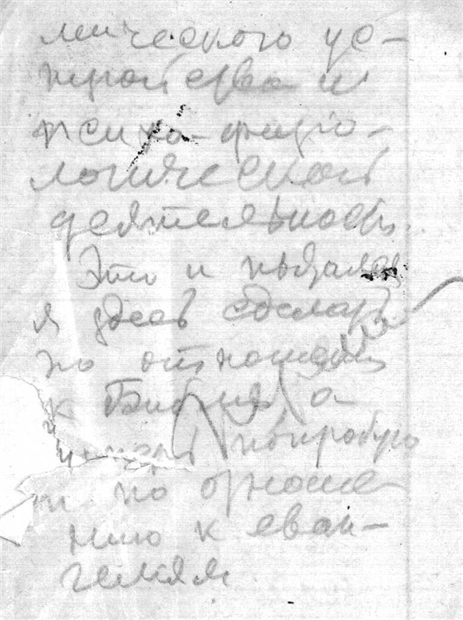 мического ус-
тройства и
психо-физио-
логической
деятельности.
Это и пытался
я здесь сделать
по отношению
к Библии, а
теперь попробую
и по отноше
нию к еван-
гелиям